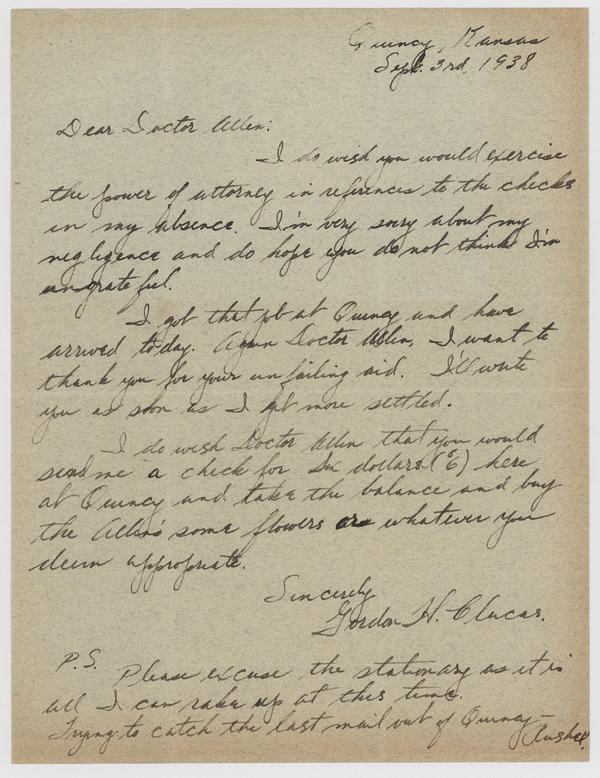 Quincy, Kansas
Sept. 3rd, 1938
Dear Doctor Allen:
I do wish you would exercise
the power of attorney in references to the checks
in my absence. I'm very sorry about my
negligence and do hope you do not think I'm
ungrateful.
I got that job at Quincy and have
arrived today. Again Doctor Allen, I want to
thank you for your unfailing aid. I'll write
you as soon as I get more settled.
I do wish Doctor Allen that you would
send me a check for Six dollars ($6) here
at Quincy and take the balance and buy
the Allen's some flowers or whatever you
deem appropriate.
Sincerely
Gordon H. Clucas.
P.S. Please excuse the stationary as it is
all I can rake up at this time.
Trying to catch the last mail out of Quincy—
Rushed.